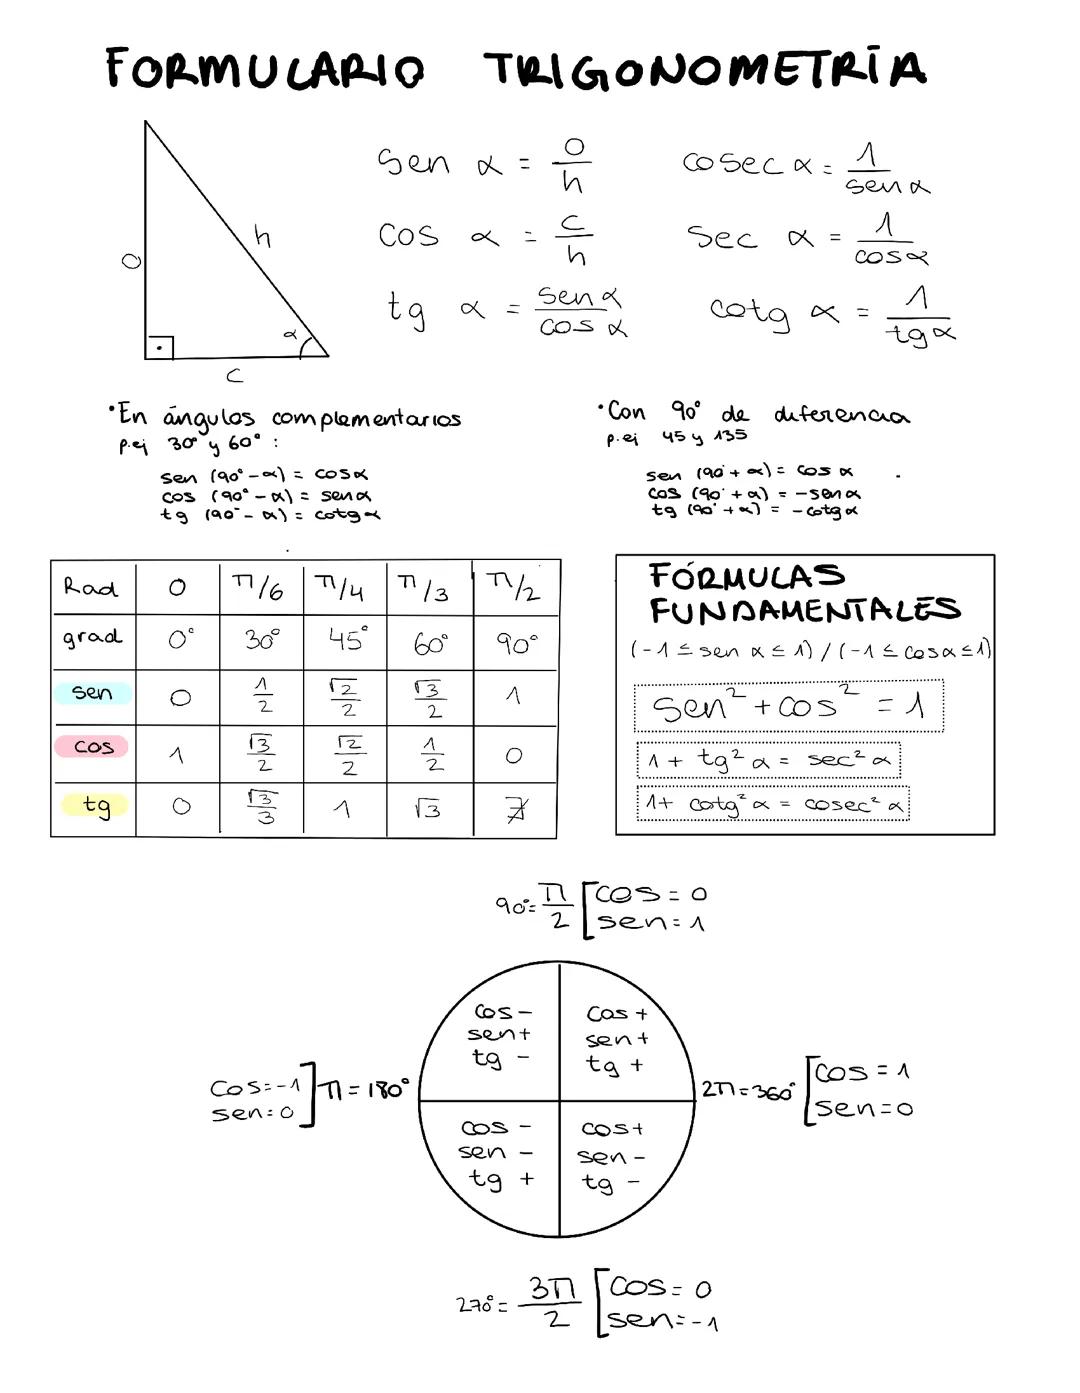 FORMULARIO TRIGONOMETRÍA
O
h
α
c
sen α = o/h
cosec α = 1/sen α
cos α = c/h
sec α = 1/cos α
tg α = sen α/cos α
cotg α = 1/tg α
•En ángulos complementarios
p.ej 30° y 60° :
sen (90° - α) = cos α
cos (90° - α) = sen α
tg (90° - α) = cotg α
•Con 90° de diferencia
p.ej 45 y 135
sen (90° + α) = cos α
cos (90° + α) = -sen α
tg (90° + α) = -cotg α
Rad 0 π/6 π/4 π/3 π/2
grad 0° 30° 45° 60° 90°
sen 0 1/2 √2/2 √3/2 1
cos 1 √3/2 √2/2 1/2 0
tg 0 √3/3 1 √3 ∄
FÓRMULAS
FUNDAMENTALES
(-1 ≤ sen α ≤ 1) / (-1 ≤ cos α ≤ 1)
sen² + cos² = 1
1 + tg² α = sec² α
1 + cotg² α = cosec² α
90° = π/2 [cos = 0
sen = 1
cos -
sen +
tg -
cos +
sen +
tg +
cos = -1
sen = 0] π = 180°
2π = 360° [cos = 1
sen = 0
cos -
sen -
tg +
cos +
sen -
tg -
270° = 3π/2 [cos = 0
sen = -1